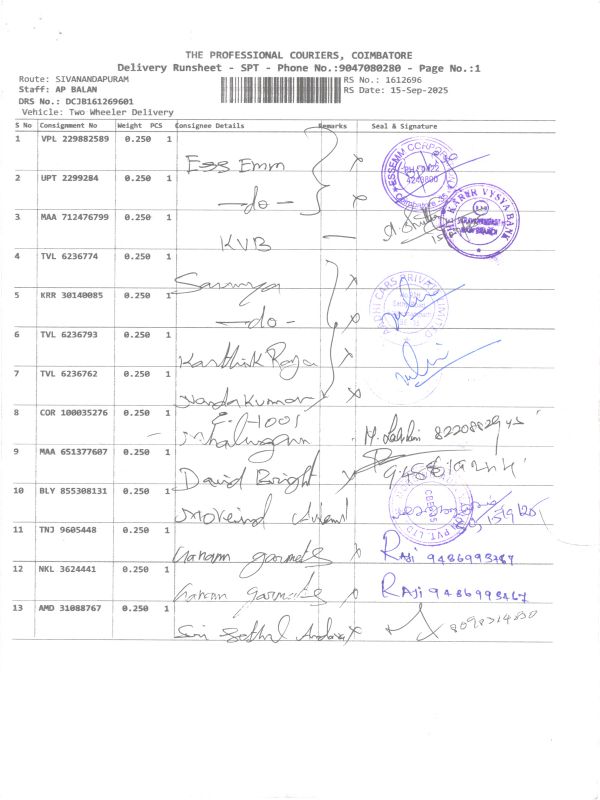 THE PROFESSIONAL COURIERS, COIMBATORE
Delivery Runsheet - SPT - Phone No.:9047080280 - Page No.:1
Route: SIVANANDAPURAM
RS No.: 1612696
Staff: AP BALAN
RS Date: 15-Sep-2025
DRS No.: DCJB161269601
Vehicle: Two Wheeler Delivery
S No Consignment No Weight PCS Consignee Details Remarks Seal & Signature
1 VPL 229882589 0.250 1
Ess Emm
2 UPT 2299284 0.250 1
-do-
3 MAA 712476799 0.250 1
KVB
KARUR VYSYA BANK
4 TVL 6236774 0.250 1
Saranya
5 KRR 30140085 0.250 1
-do-
6 TVL 6236793 0.250 1
Karthik Raja
7 TVL 6236762 0.250 1
Nanda Kumar
8 COR 100035276 0.250 1
E-1001
9 MAA 651377607 0.250 1
David Bright
10 BLY 855308131 0.250 1
11 TNJ 9605448 0.250 1
garmets
Raji
12 NKL 3624441 0.250 1
garmets
Raji 9486993467
13 AMD 31088767 0.250 1
Sri
8098314830